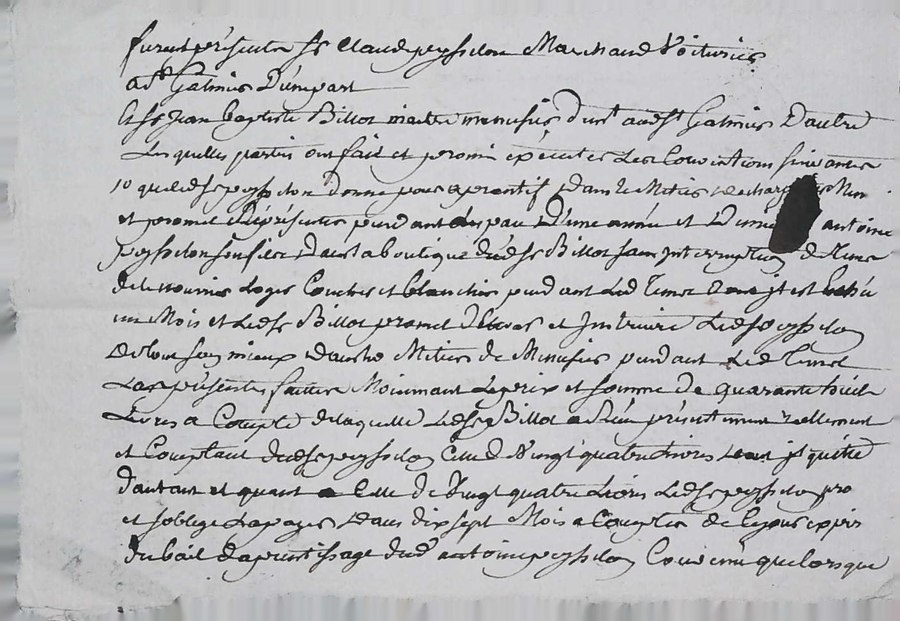 furent présents Sr Claude peyssclon Marchand Voiturier
a St Galmier D'unepart
Et Sr Jean baptiste Billot maitre menusier dud. aud St Galmier D'autre
Lesquelles parties ont fait et promis exécuter Les Conventions suivantes
10 que led Sr peyssclon donne pour aprentif dans le Metier
et promet Représenter pendant un peu D'une année et Demie antoine
peyssclon son fils Dans la boutique dud Sr Billot sans jnterruption de tems
de le nourrir Loger Coucher et blanchir pendant Led tems
un Mois et Led Sr Billot promet D'élever et jnstruire Led peyssclon
de tout son mieux dans le Metier de Menusier pendant Led tems
La présente faitte Moiennant Le prix et somme de quarante huit
Livres a Compte de laquelle Led Sr Billot a Reçu présentement réellement
et Comptant dud Sr peyssclon Celle de Vingt quatre Livres
d'autant et quant a Celle de Vingt quatre Livres Led Sr peyssclon pro
et s'oblige La payer dans dix sept Mois a Compter de
du bail d'aprentissage dud antoine peyssclon Convenu que lorsque